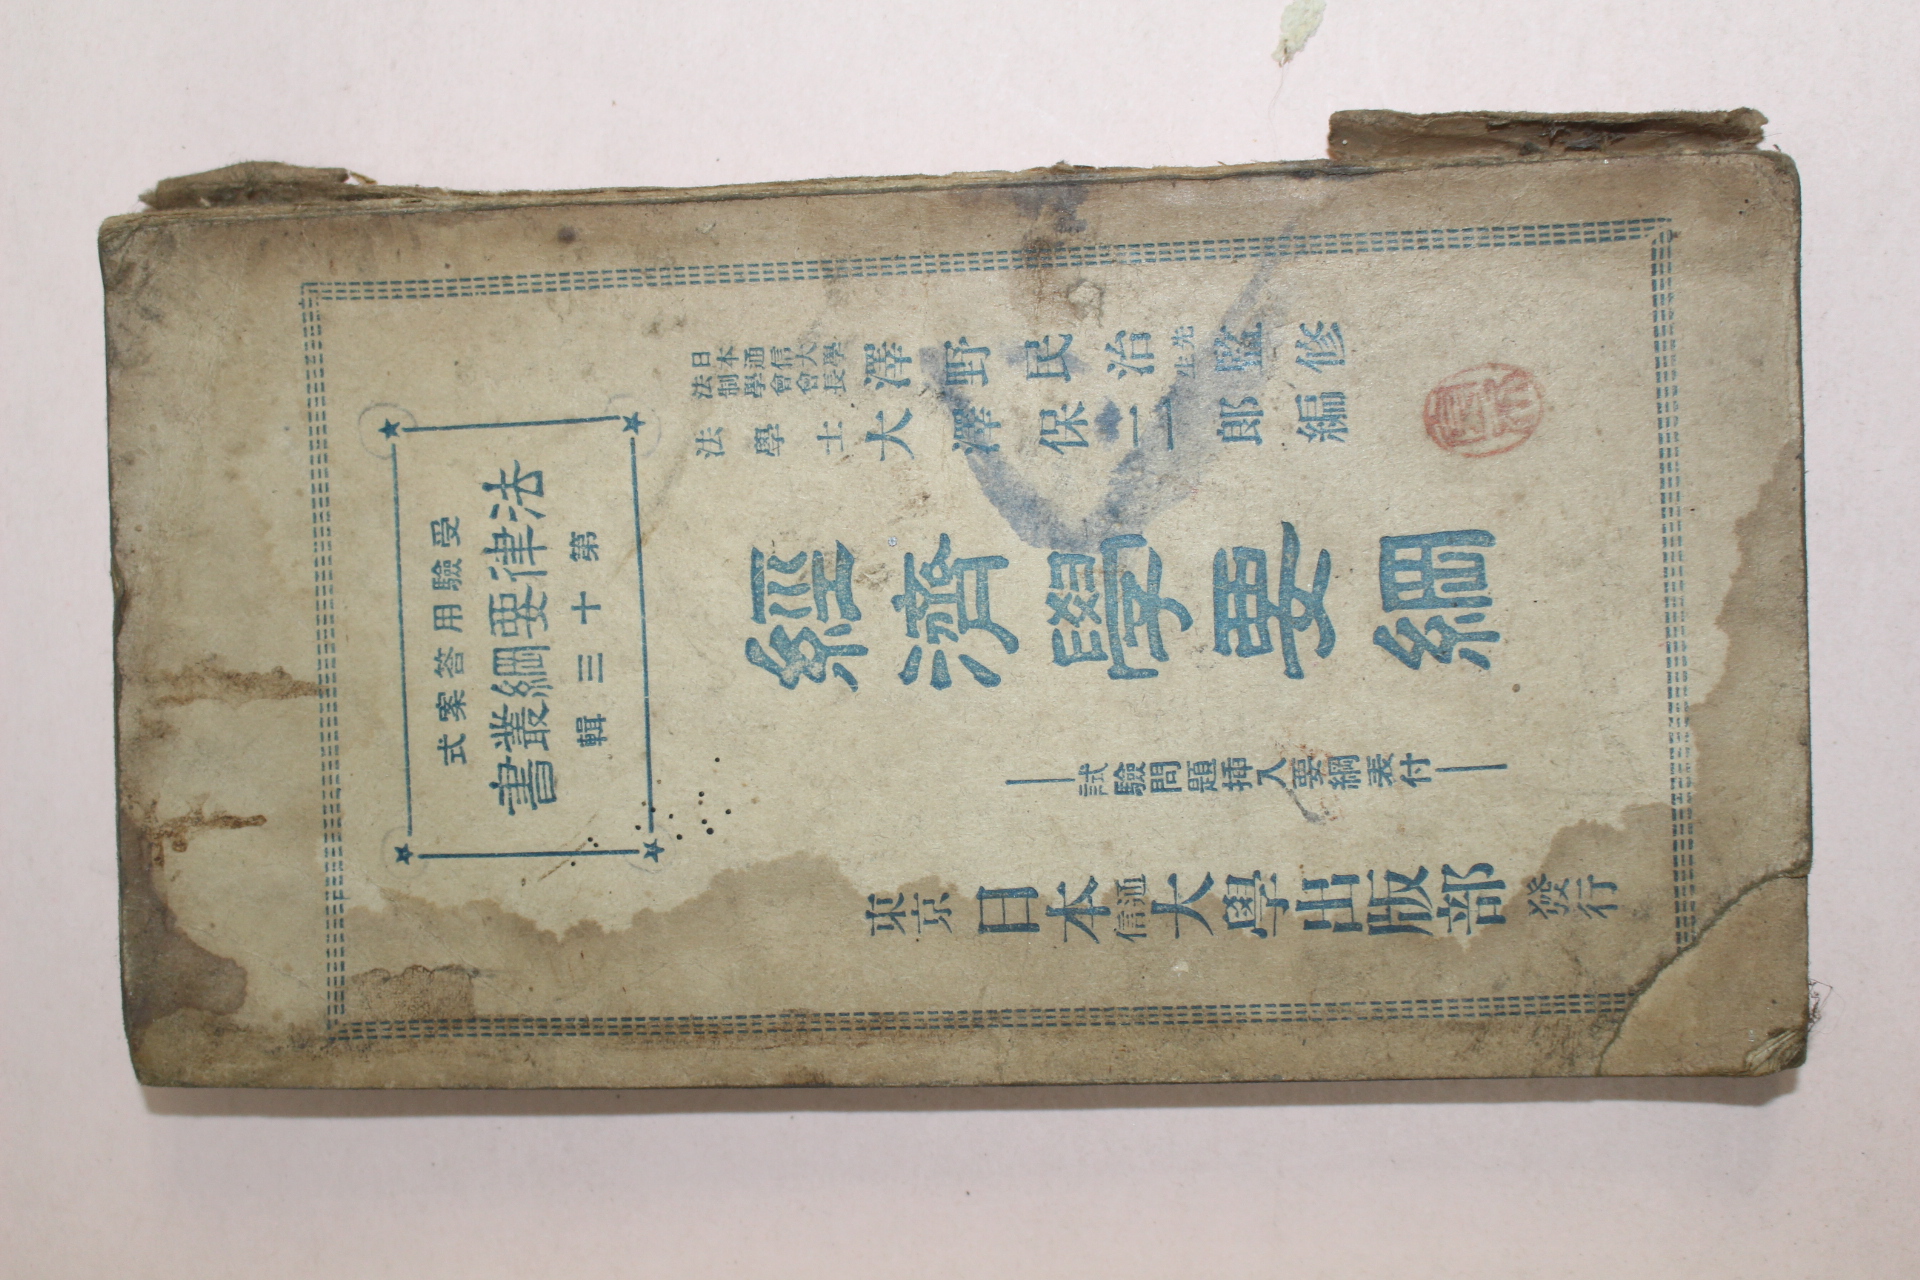 受驗用答案式
法律要綱叢書
第十三輯
日本通信大學
法制學會會長
澤野民治先生監修
法學士大澤保二郎編
經濟學要綱
試驗問題挿入要綱表付
東京日本通信大學出版部發行